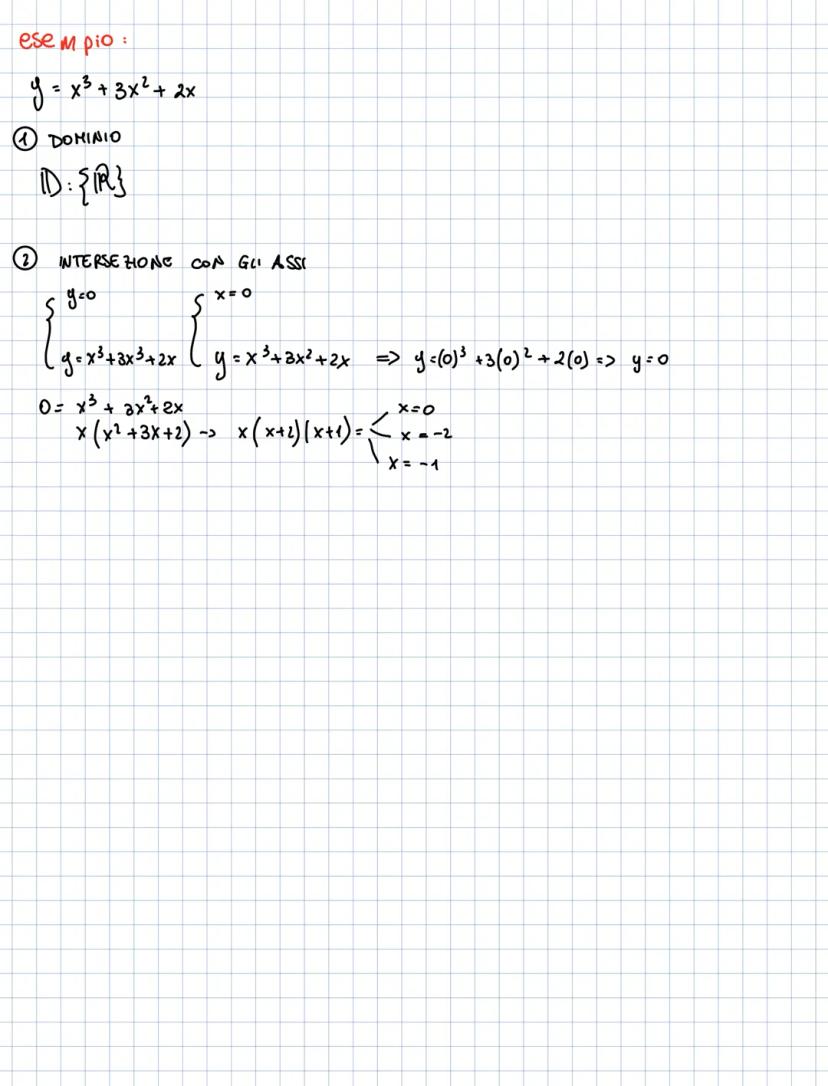 esempio:
y = x³ + 3x² + 2x
① DOMINIO
D: {ℝ}
② INTERSEZIONE CON GLI ASSI
{ y=0 { x=0
y = x³+3x³+2x y = x³+3x²+2x => y=(0)³ +3(0)² + 2(0) => y=0
0 = x³ + 3x²+2x x=0
x(x² +3x+2) -> x(x+2)(x+1)= x = -2
x = -1